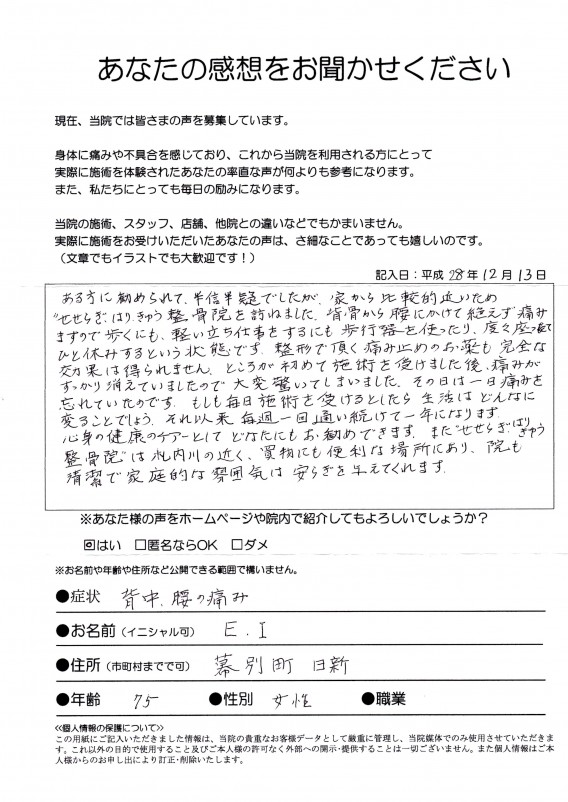 あなたの感想をお聞かせください
現在、当院では皆さまの声を募集しています。
身体に痛みや不具合を感じており、これから当院を利用される方にとって
実際に施術を体験されたあなたの率直な声が何よりも参考になります。
また、私たちにとっても毎日の励みになります。
当院の施術、スタッフ、店舗、他院との違いなどでもかまいません。
実際に施術をお受けいただいたあなたの声は、ささいなことであっても嬉しいのです。
（文章でもイラストでも大歓迎です！）
記入日：平成 28年 12月 13日
ある方に勧められて、半信半疑でしたが、家から比較的近いため
"せせらぎ、はり、きゅう整骨院を訪ねました。背骨から腰にかけて絶えず痛み
ますので歩くにも、軽い立ち仕事をするにも歩行器を使ったり、度々座って
ひと休みするという状態です。整形で頂く痛み止めのお薬も完全な
効果は得られません。ところが初めて施術を受けました後、痛みが
すっかり消えていましたので大変驚いてしまいました。その日は一日痛みを
忘れていたのです。もしも毎日施術を受けるとしたら生活はどんなに
変ることでしょう。それ以来毎週一回通い続けて一年になります。
心身の健康のケアーとしてどなたにもお勧めできます。また"せせらぎはりきゅう
整骨院"は札内川の近く、買物にも便利な場所にあり、院も
清潔で家庭的な雰囲気は安らぎを与えてくれます。
※あなた様の声をホームページや院内で紹介してもよろしいでしょうか？
☑はい □匿名ならOK □ダメ
※お名前や年齢や住所など公開できる範囲で構いません。
●症状 背中、腰の痛み
●お名前（イニシャル可） E.I
●住所（市町村までで可） 幕別町 日新
●年齢 75 ●性別 女性 ●職業
≪個人情報の保護について≫
この用紙にご記入いただきました情報は、当院の貴重なお客様データとして厳重に管理し、当院媒体でのみ使用させていただきま
す。これ以外の目的で使用すること及びご本人様の許可なく外部への開示・提供することは一切ございません。また個人情報はご本
人様からのお申し出により訂正・削除いたします。